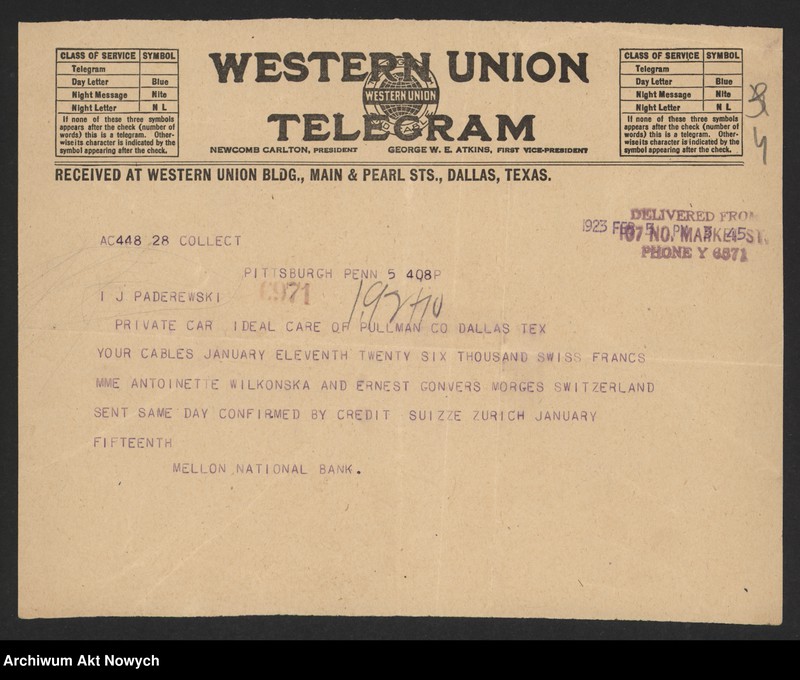 CLASS OF SERVICE SYMBOL
Telegram
Day Letter Blue
Night Message Nite
Night Letter N L
If none of these three symbols
appears after the check (number of
words) this is a telegram. Other-
wise its character is indicated by the
symbol appearing after the check.
WESTERN UNION
WESTERN UNION
TELEGRAM
NEWCOMB CARLTON, PRESIDENT GEORGE W. E. ATKINS, FIRST VICE-PRESIDENT
CLASS OF SERVICE SYMBOL
Telegram
Day Letter Blue
Night Message Nite
Night Letter N L
If none of these three symbols
appears after the check (number of
words) this is a telegram. Other-
wise its character is indicated by the
symbol appearing after the check.
4
RECEIVED AT WESTERN UNION BLDG., MAIN & PEARL STS., DALLAS, TEXAS.
DELIVERED FROM
1923 FEB 5 PM 3 45
107 NO. MARKET ST.
PHONE Y 6571
AC448 28 COLLECT
PITTSBURGH PENN 5 408P
I J PADEREWSKI C971
PRIVATE CAR IDEAL CARE OF PULLMAN CO DALLAS TEX
YOUR CABLES JANUARY ELEVENTH TWENTY SIX THOUSAND SWISS FRANCS
MME ANTOINETTE WILKONSKA AND ERNEST GONVERS MORGES SWITZERLAND
SENT SAME DAY CONFIRMED BY CREDIT SUIZZE ZURICH JANUARY
FIFTEENTH
MELLON NATIONAL BANK.
Archiwum Akt Nowych